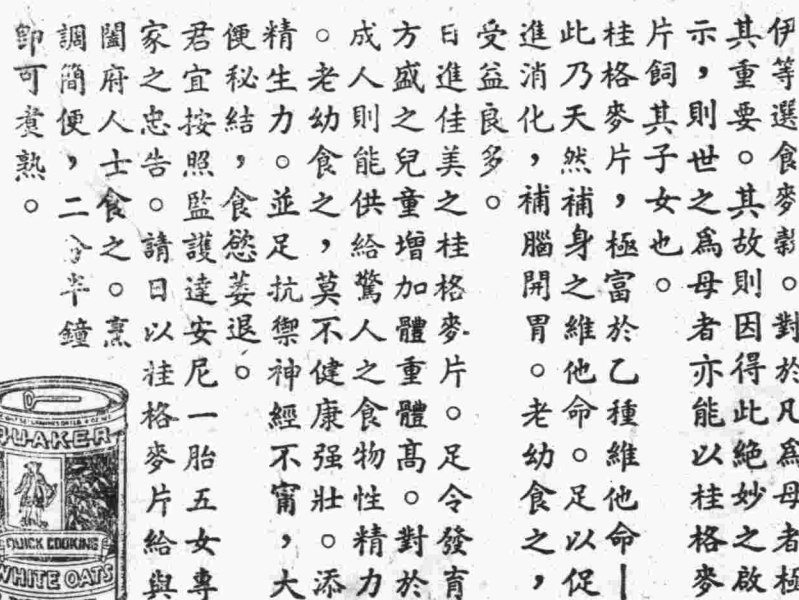 伊等選食麥穀。對於凡爲母者極
其重要。其故則因得此絶妙之啟
示，則世之爲母者亦能以桂格麥
片飼其子女也。
桂格麥片，極富於乙種維他命—
此乃天然補身之維他命。足以促
進消化，補腦開胃。老幼食之，
受益良多。
日進佳美之桂格麥片。足令發育
方盛之兒童增加體重體高。對於
成人則能供給驚人之食物性精力
。老幼食之，莫不健康强壯。添
精生力。並足抗禦神經不甯，大
便秘結，食慾萎退。
君宜按照監護達安尼一胎五女專
家之忠告。請日以桂格麥片給與
闔府人士食之。烹
調簡便，二分半鐘
卽可煑熟。
QUAKER
QUICK COOKING
WHITE OATS